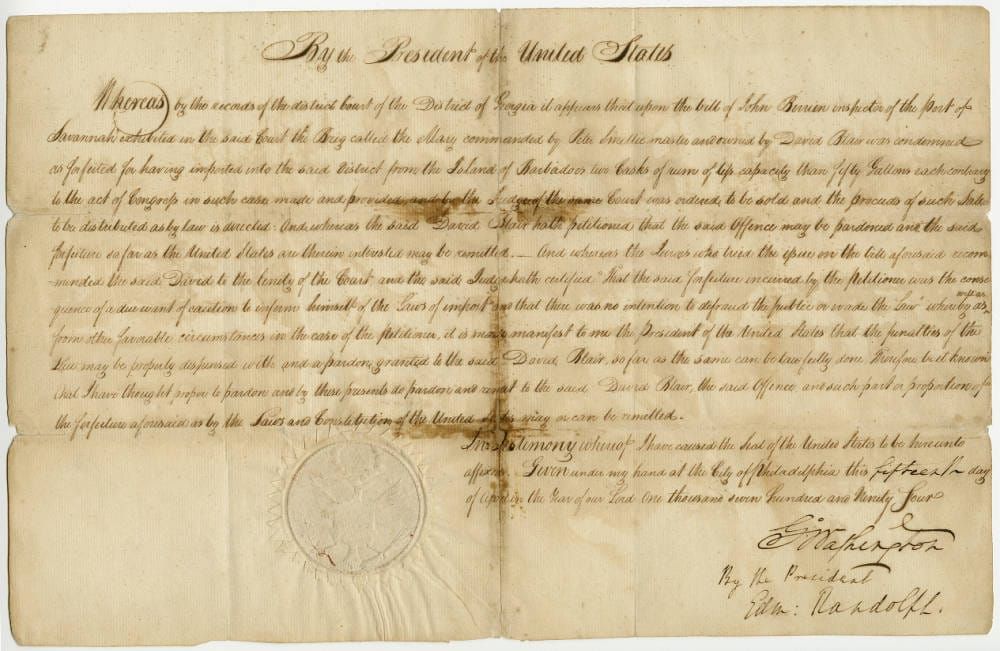 By the President of the United States
Whereas by the records of the district Court of the District of Georgia it appears that upon the bill of John Berrien inspector of the Port of
Savannah exhibited in the said Court the Brig called the Mary commanded by Peter Smellie master and owned by David Blair was condemned
as forfeited for having imported into the said District from the Island of Barbadoes two Casks of rum of less capacity than fifty Gallons each contrary
to the act of Congress in such case made and provided, and by the Judge of the same Court was ordered to be sold and the proceeds of such Sale
to be distributed as by law is directed: And whereas the said David Blair hath petitioned that the said Offence may be pardoned and the said
forfeiture so far as the United States are therein interested may be remitted. — And whereas the Jurors who tried the issue on the bill aforesaid recom-
mended the said David to the lenity of the Court and the said Judge hath certified "That the said forfeiture incurred by the Petitioner was the conse-
quence of a due want of caution to inform himself of the Laws of impost and that there was no intention to defraud the public or evade the Law" whereby as well as
from other favorable circumstances in the case of the Petitioner, it is made manifest to me the President of the United States that the penalties of the
Law may be properly dispensed with and a pardon granted to the said David Blair, so far as the same can be lawfully done Therefore be it known
that I have thought proper to pardon and by these presents do pardon and remit to the said David Blair, the said Offence and such part or proportion of
the forfeiture aforesaid as by the Laws and Constitution of the United States may or can be remitted.
In Testimony whereof I have caused the Seal of the United States to be hereunto
affixed. Given under my hand at the City of Philadelphia this fifteenth day
of April in the Year of our Lord One thousand seven hundred and Ninety Four
G Washington
By the President
Edm: Randolph.